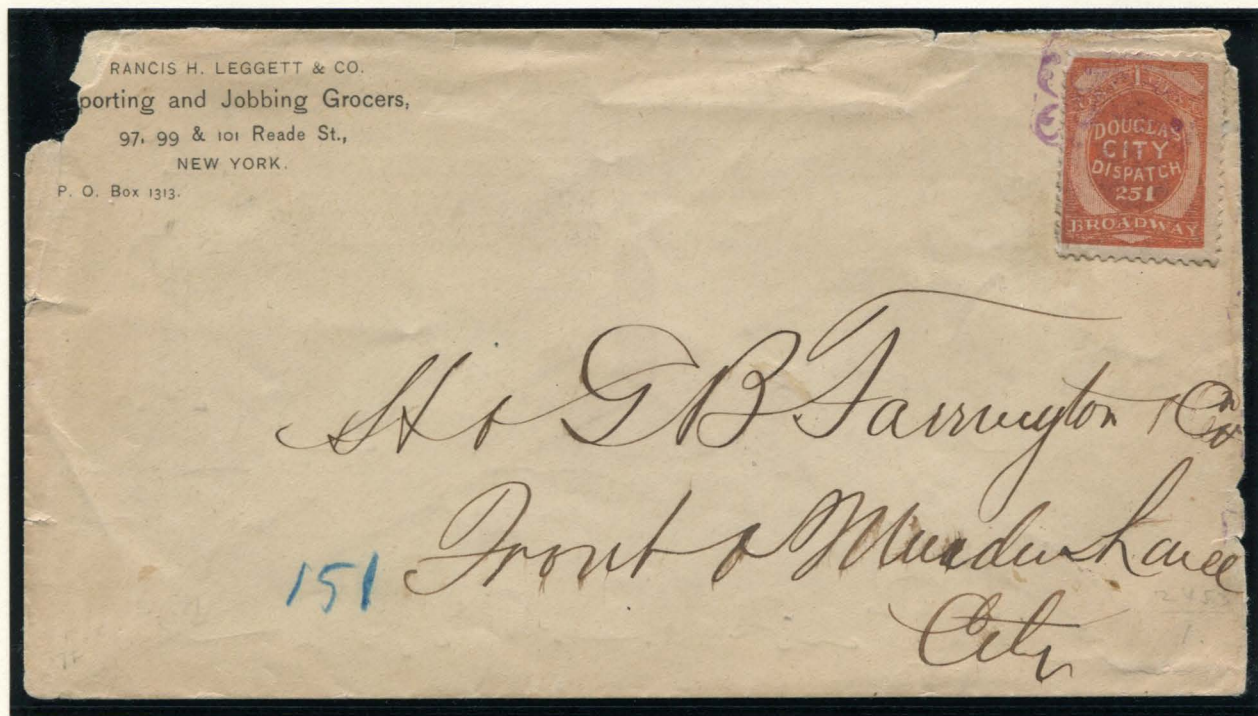 RANCIS H. LEGGETT & CO.
porting and Jobbing Grocers,
97, 99 & 101 Reade St.,
NEW YORK.
P. O. Box 1313.
1
DOUGLAS
CITY
DISPATCH
251
BROADWAY
H & G B Farrington
Front & Maiden Lane
City
151